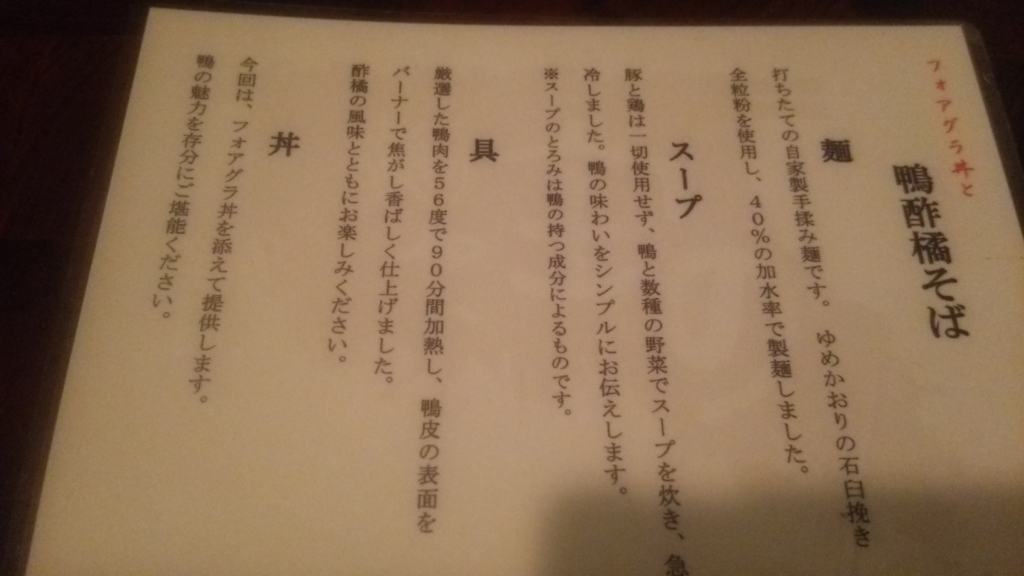 フォアグラ丼と
鴨酢橘そば
麺
打ちたての自家製手揉み麺です。 ゆめかおりの石臼挽き
全粒粉を使用し、40%の加水率で製麺しました。
スープ
豚と鶏は一切使用せず、鴨と数種の野菜でスープを炊き、急
冷しました。鴨の味わいをシンプルにお伝えします。
※スープのとろみは鴨の持つ成分によるものです。
具
厳選した鴨肉を56度で90分間加熱し、鴨皮の表面を
バーナーで焦がし香ばしく仕上げました。
酢橘の風味とともにお楽しみください。
丼
今回は、フォアグラ丼を添えて提供します。
鴨の魅力を存分にご堪能ください。